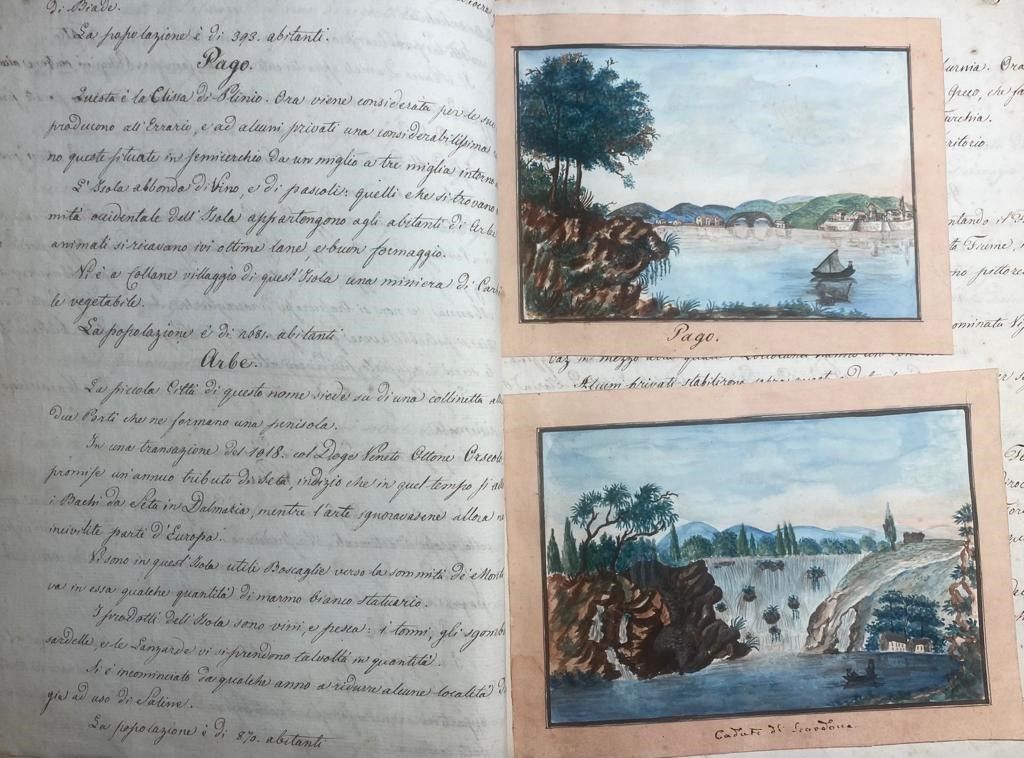 di Biade.
La popolazione è di 393. abitanti.
Pago.
Questa è la Clissa di Plinio. Ora viene considerata per le sue
producono all'Errario, e ad alcuni privati una considerabilissima
no queste situate in semicerchio da un miglio a tre miglia intorno
L'Isola abbonda di Vino, e di pascoli: quelli che si trovano
mità occidentale dell'Isola appartengono agli abitanti di Arbe
animali si ricavano ivi ottime lane, e buon formaggio.
Vi è a Collane villaggio di quest'Isola una miniera di Carbo
le vegetabile.
La popolazione è di abitanti
Arbe.
La piccola Città di questo nome siede su di una collinetta
due Porti che ne formano una penisola.
In una transazione del 1018. col Doge Veneto Ottone Orseolo
promise un'annuo tributo di Seta, indizio che in quel tempo si
i Bachi da Seta in Dalmazia, mentre l'arte ignoravasene allora
incivilite parte d'Europa.
Vi sono in quest'Isola utili Boscaglie verso la sommità de' Mont
va in essa qualche quantità di marmo bianco statuario.
I prodotti dell'Isola sono vini, e pesca: i tonni, gli sgomb
sardelle, e le Lanzarde vi si prendono talvolta in quantità.
Si è incominciato da qualche anno a ridurre alcune località
già ad uso di Saline.
La popolazione è di 870. abitanti
Pago.
Cadute di Scardona
Ora
Greco, che fa
urchia.
ritorio.
Fiume,
no pittore
ominata
in mezzo
Alcuni privati stabilirono